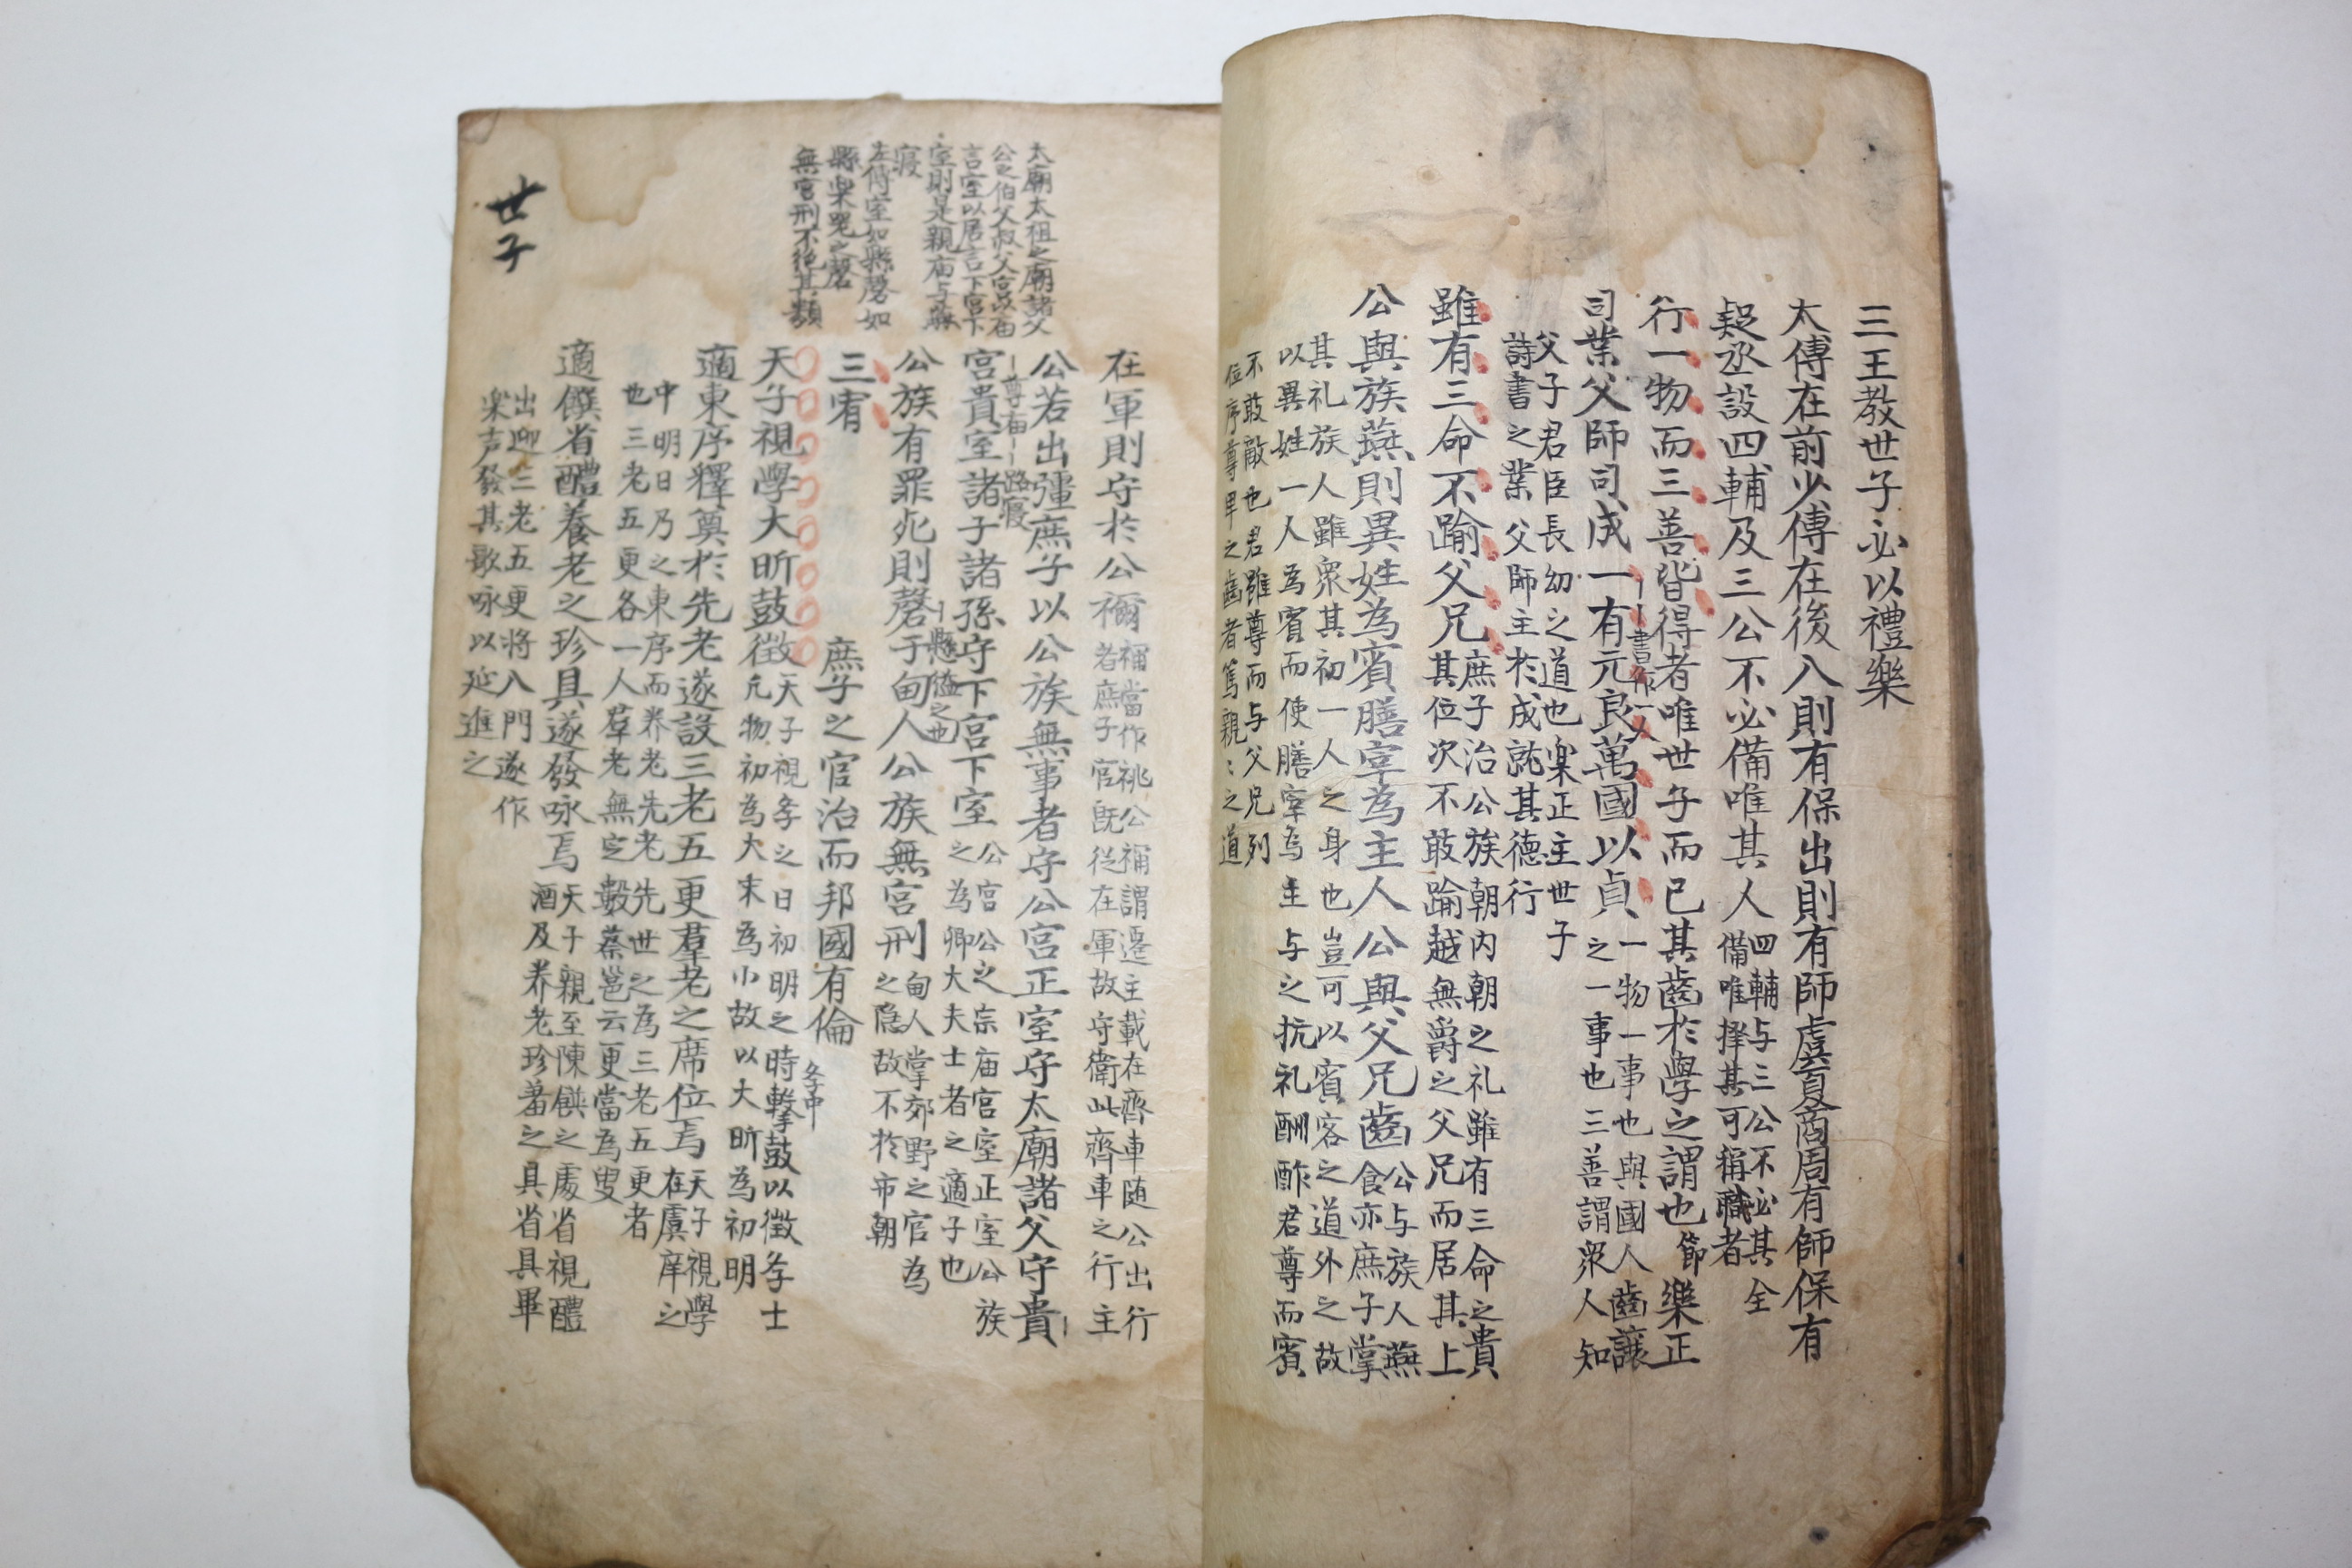 三王教世子必以禮樂
太傅在前少傅在後入則有保出則有師虞夏商周有師保有
疑丞設四輔及三公不必備唯其人
四輔与三公不必其全
備唯擇其可稱職者
行一物而三善皆得者唯世子而已其齒於學之謂也
節
樂正
司業父師司成一有元良萬國以貞
一物一事也與國人齒讓
之一事也三善謂衆人知
書作一人
父子君臣長幼之道也楽正主世子
詩書之業父師主於成就其德行
雖有三命不踰父兄
庶子治公族朝内朝之礼雖有三命之貴
其位次不敢踰越無爵之父兄而居其上
公與族燕則異姓為賓膳宰為主人公與父兄齒
公与族人燕
食亦庶子掌
其礼族人雖衆其初一人之身也豈可以賓客之道外之故
以異姓一人為賓而使膳宰為主与之抗礼酬酢君尊而賓
不敢敵也君雖尊而与父兄列
位序尊卑之齒者篤親〻之道
在軍則守於公禰
禰當作祧公禰謂遷主載在齊車随公出行
者庶子官既従在軍故守衛此齊車之行主
公若出彊庶子以公族無事者守公宮正室守太廟諸父守貴
尊庙
路寝
宮貴室諸子諸孫守下宮下室
公宮公之宗庙宮室正室公族
之為卿大夫士者之適子也
公族有罪死則磬于甸人公族無宮刑
懸縊之也
甸人掌郊野之官為
之隐故不於市朝
三宥
庶子之官治而邦國有倫
天子視學大昕鼓徵
天子視斈之日初明之時擊鼓以徵斈士
凢物初為大末為小故以大昕為初明
斈中
適東序釋奠於先老遂設三老五更羣老之席位焉
天子視學
在虞庠之
中明日乃之東序而养老先老先世之為三老五更者
也三老五更各一人羣老無定數蔡邕云更當為叟
適饌省醴養老之珍具遂發咏焉
天子親至陳饌之處省視醴
酒及养老珍羞之具省具畢
出迎三老五更将入門遂作
楽声發其歌咏以延進之
太廟太祖之廟諸父
公之伯父叔父宮以庙
言室以居言下宮下
室則是親庙与燕
寝
左傳室如縣磬如
縣楽器之磬
無宮刑不絶其類
世子